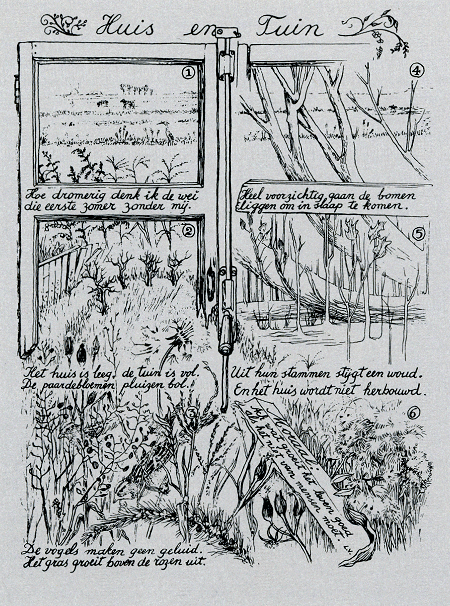 Huis en Tuin
1
Hoe dromerig denk ik de wei
die eerste zomer zonder mij.
2
Het huis is leeg, de tuin is vol.
De paardebloemen pluizen bol.
De vogels maken geen geluid.
Het gras groeit boven de rozen uit.
4
Heel voorzichtig gaan de bomen
liggen om in slaap te komen.
5
Uit hun stammen stijgt een woud.
En het huis wordt niet herbouwd.
6
goed
over mensen